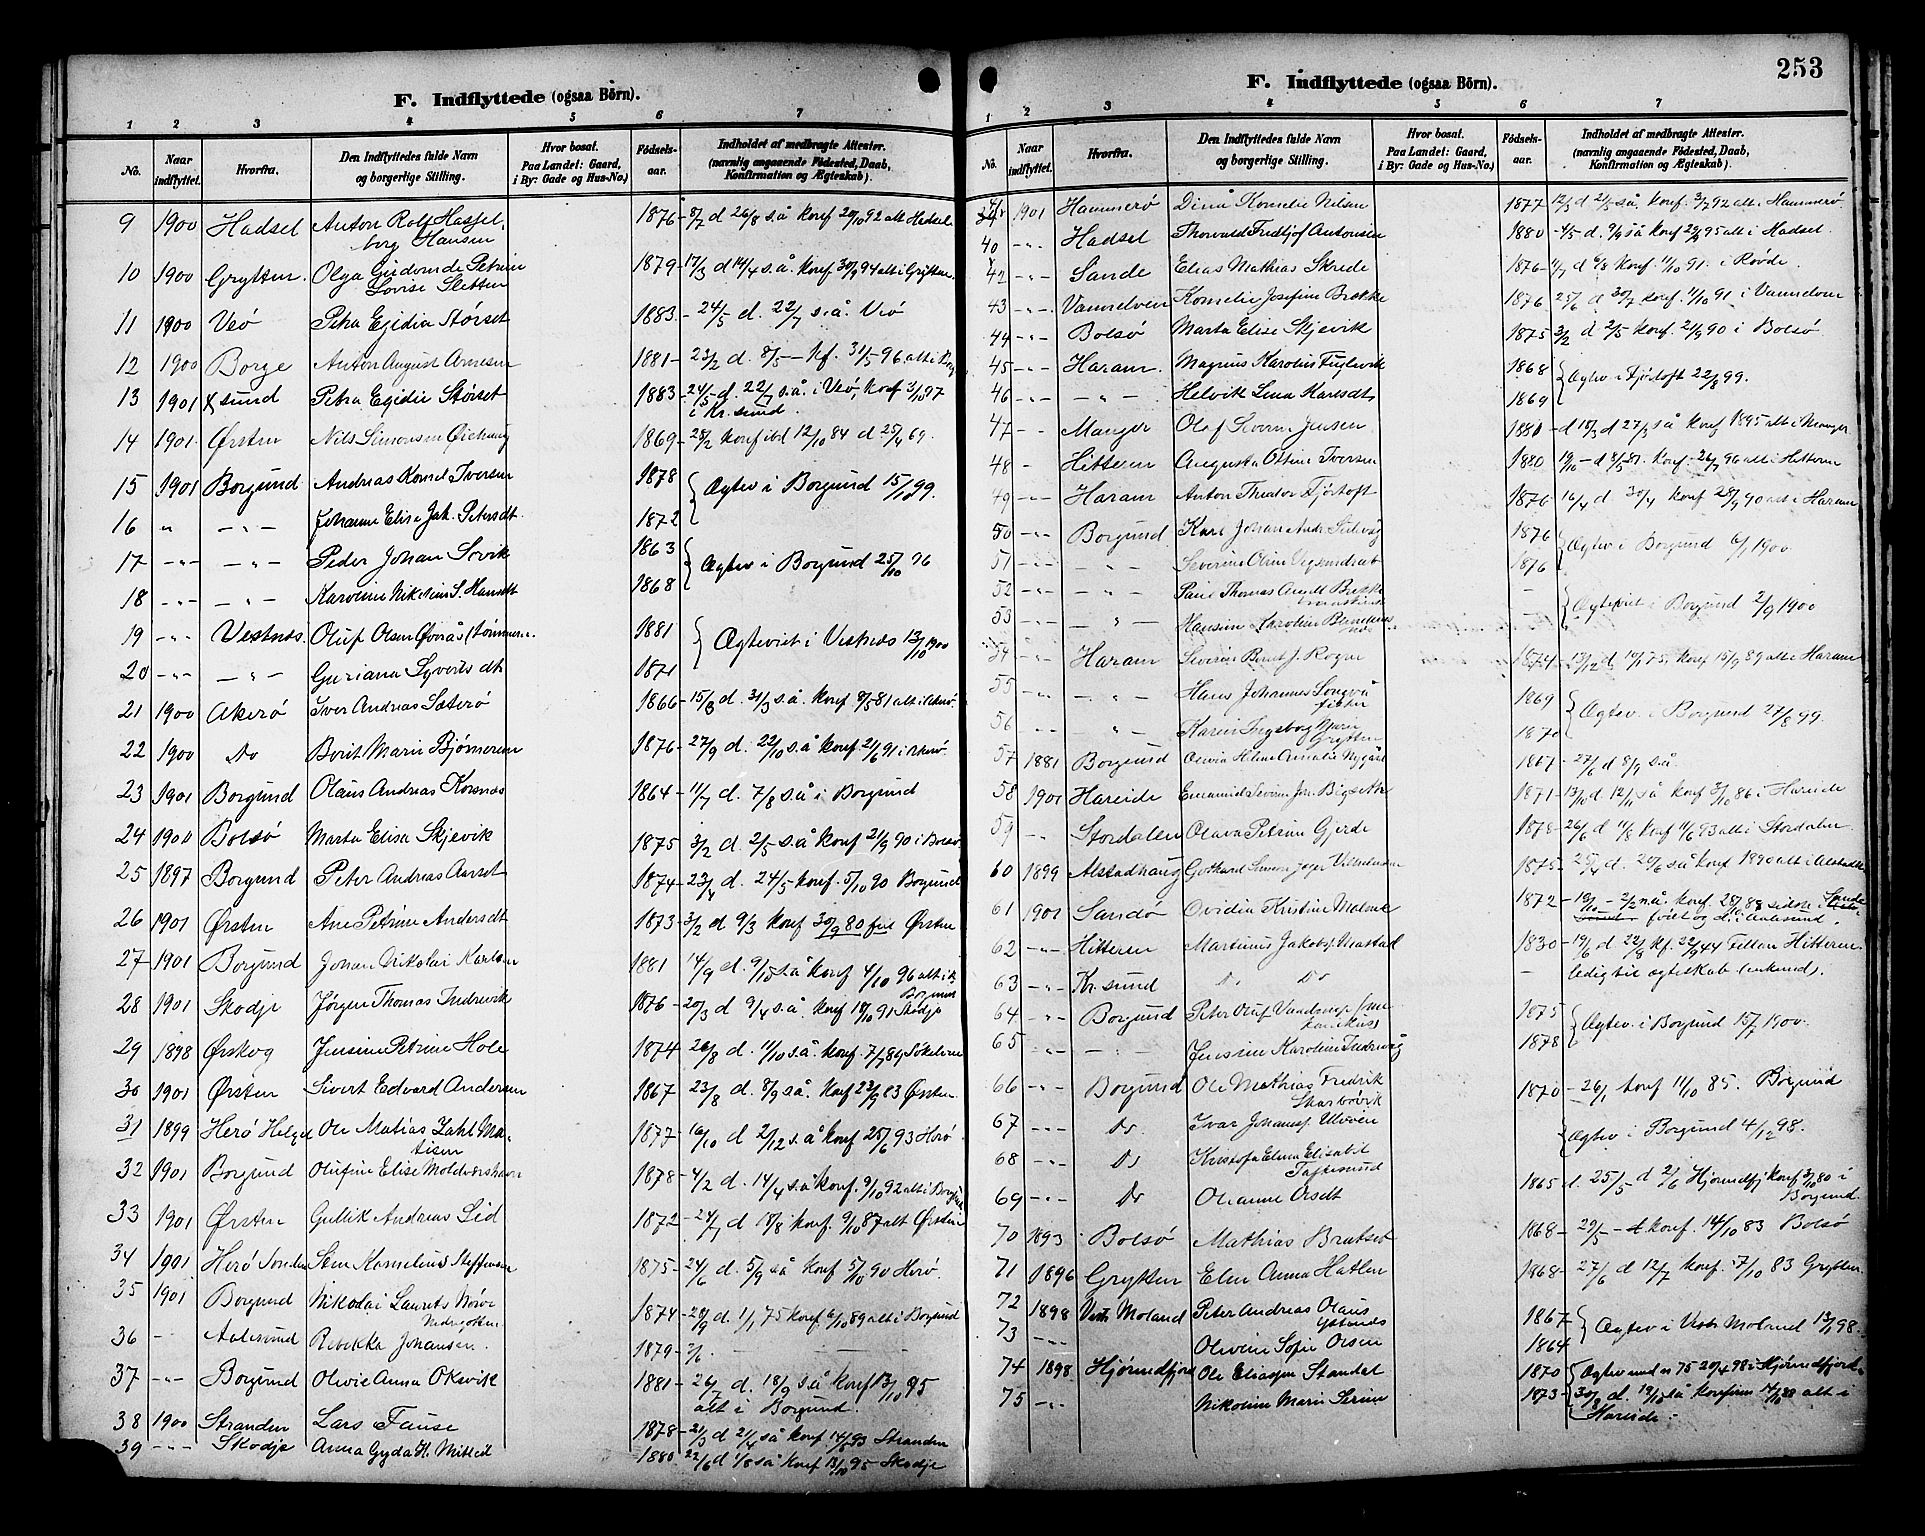 F. Indflyttede (ogsaa Börn).
1 2 3 4 5 6 7
No. Naar indflyttet. Hvorfra. Den Indflyttedes fulde Navn og borgerlige Stilling. Hvor bosat. Paa Landet: Gaard, i By: Gade og Hus-No.) Födsels-aar. Indholdet af medbragte Attester. (navnlig angaaende Födested, Daab, Konfirmation og Ægteskab).
9 1900 Hadsel Anton Rolf Hassel- 1876- 8/7 d 26/8 s.å konf 20/10 92 alt Hadsel
borg Hansen
10 1900 Grytten. Olga Gudomde Petrine 1879- 17/3 d 14/4 s.å. konf 30/9 94 alt i Grytten
Lovise Sletten
11 1900 Veö Petra Egidia Störset 1883.- 24/5 d. 22/7 s.å. Veö
12 1900 Borge Anton August Arnesen 1881- 23/2 d. 8/5 - kf. 31/5 96 alt i Borg
13 1901 Kr sund Petra Egidie Störset 1883- 24/5 d. 22/7 s.å. i Veö, konf 3/10 97
i Kr. sund.
14 1901. Ørsten Nils Simonsen 1869- 28/2 konf ibd 12/10 84 d 25/4 69.
15 1901 Borgund Andreas Kornel Iversen 1878 { Ægtev i Borgund 15/10 99.
16 " -"- Johanne Elise Jak. Petersdt 1872
17 -"- -"- Peder Johan Sovik 1863 { Ægtev i Borgund 25/10 96
18 -"- -"- Karoline Nikoline S. Hansdt 1868
19 -"- Vestnes. Oluf Olsen Øvrås (tömmerm. 1881 { Ægteviet i Vestnes 13/10 1900
20 -"- -"- Guriana Syvertsdt 1871
21 1900 Akerö Iver Andreas Sæterö 1866- 15/3 d. 31/3 s.å. konf 8/5 81 alt i Akerö.
22 1900 Do Borit Marie Bjørnerem 1876- 27/9 d. 22/10 s.å konf 21/6 91 i Akerö.
23 1901 Borgund Olaus Andreas Korsnes 1864- 11/7 d. 7/8 s.å i Borgund
24 1900 Bolsö Marta Elise Skjevik 1875 3/2 d. 2/5 s.å konf 21/9 90 i Bolsö
25 1897 Borgund Peter Andreas Aarset 1874- 23/4 d. 24/5 konf. 5/10 90 Borgund
26 1901 Ørsten Ane Petrine Andersdt 1873- 3/2 d 9/3 konf 30/9 80 feil Ørsten
27 1901 Borgund Johan Nikolai Karlsen 1881 14/9 d. 9/10 s.å konf 4/10 96 alt i
Borgund
28 1901 Skodje Jörgen Thomas Indrevik 1876- 20/3 d 9/4 s.å. konf 18/10 91 Skodje
29 1898 Ørskog Jensine Petrine Hole 1874 26/8 d. 11/10 s.å. konf 7/7 89 Sökelven
30 1901 Ørsten Sivert Edvard Andersen 1867 23/8 d. 8/9 s.å. konf 23/9 83 Ørsten
31 1899 Herö Helgel Ole Matias Zahl Ma- 1877- 16/10 d 2/12 s.å konf 25/6 93 Herö
tisen
32 1901 Borgund Olufine Elise Moldværshavn 1878- 4/2 d. 14/4 s.å konf. 9/10 92 alt i Borgund
33 1901 Ørsten Gullik Andreas Lid 1872- 24/7 d 18/8 konf. 9/10 87 alt Ørsten
34 1901 Herö Sönden Sten Kornelius Steffensen 1875- 24/6 d. 5/9 så konf 5/10 90 Herö.
35 1901 Borgund Nikolai Laurits Nörve 1874- 28/9 d. 1/1 75 konf 6/10 89 alt i Borgund
Nedregotten
36 - Aalesund Rebekka Johansen. 1879- 2/6 .
37 -"- Borgund Olivie Anna Okevik 1881- 26/7 d. 18/9 s.å konf 13/10 95
alt i Borgund.
38 1900 Stranden Lars Fause 1878- 21/3 d 21/4 så konf 14/5 93 Stranden
39 -"- Skodje Anna Gyda H. Mittet 1880 22/6 d 1/8 så konf 13/10 95 Skodje
253
F. Indflyttede (ogsaa Börn).
1 2 3 4 5 6 7
No. Naar indflyttet. Hvorfra. Den Indflyttedes fulde Navn og borgerlige Stilling. Hvor bosat. Paa Landet: Gaard, i By: Gade og Hus-No.) Födsels-aar. Indholdet af medbragte Attester. (navnlig angaaende Födested, Daab, Konfirmation og Ægteskab).
1901 Hammerö Dina Kornelie Nilsen 1877- 12/3 d 21/5 s.å. konf. 3/7 92 alt i Hammerö.
40 -"- Hadsel Thorvald Fredtjof Antonsen 1880- 4/5 d. 9/9 så konf 29/9 95 alt i Hadsel.
42 -"- Sande Elias Mathias Skrede 1876- 11/7 d 6/8 konf. 11/10 91. i Røvde.
43 -"- Vannelven Kornelie Josefine Brekke 1876 25/6 d 30/7 konf. 11/10 91 i Vannelven
44 -"- Bolsö Marta Elise Skjevik 1875 3/2 d 2/5 konf. 21/9 90 i Bolsö
45 -"- Haram. Magnus Karolius Fuglevik 1868 { Ægtev. i Fjörtoft 22/8 99.
46 -"- -"- Helvik Lina Karlsdt 1869
47 -"- Manger Olaf Severin Jensen 1880- d 18/3 d 27/3 så konf 1895 alt i Manger
48 - Hitteren Augusta Ottine Iversen 1880 19/10 - d 8/5 81. konf. 26/7 96 alt i Hitteren
49 -"- Haram Anton Theodor Fjörtoft 1876 16/4 d 30/4 konf 28/9 90 alt i Haram
50 -"- Borgund Karl Johan Andr. 1876 { Ægtev i Borgund 6/1 1900.
51 -"- -"- Severine Oline 1876
52 -"- -"- Paul Thomas Brekke - { Ægteviet i Borgund 2/9 1900
53 -"- -"- Hansine Karoline
54 -"- Haram Severin Bernt J. Rogne 1874- 13/12 d 10/1 75. konf 15/9 89 alt i Haram
55 -"- -"- Hans Johannes Longva 1869 { Ægtev. i Borgund 27/8 99.
fisker
56 -"- Karen Ingeborg Marie 1870
Grytten
57 1881 Borgund Olivia Helene Amalie Nygård 1867- 27/6 d 8/9 s.å.
58 1901 Hareide Emanuel Severin Joh. Bigset 1871- 13/10 d. 12/11 så konf 3/10 86 i Hareide
59 -"- Stordalen Olava Petrine Gjerde 1878- 26/6 d 11/8 konf 11/6 93 alt i Stordalen
60 1899 Alstadhaug Gothard 1875- 25/4 d. 20/6 så konf 1890 alt i Alstadh
61 1901 Sandö Ovidia Kristine Malme 1872- 19/10 - 2/2 n.å. konf. 28/10 88
62 -"- Hitteren Martinus Jakobsen Mastad 1830- 19/6 d 22/8 kf. 22/9 44 Fillan Hitteren
63 -"- Kr. sund Do Do - ledig til ægteskab (enkemd).
64 -"- Borgund Peter Oluf 1875 { Ægtev. i Borgund 15/7 1900.
65 -"- -"- Jensine Karoline Indrevåg 1878
66 -"- Borgund Ole Mathias Fredrik 1870- 26/1 konf 11/10 85. Borgund
Skarbövik
67 -"- Do Ivar Johannes Ulvöen { Ægtev i Borgund 4/12 98.
68 -"- Do Kristofa Elena Elisabet
69 -"- Do Oleanne Orsdt 1865 d. 25/5 - d 2/6 Hjörundfj konf 3/10 80 i
Borgund.
70 1893 Bolsö Mathias Brutset 1868- 29/5 - konf. 14/10 83 Bolsö
71 1896 Grytten Elen Anna Hatlen 1868- 27/6 d 12/7 konf. 7/10 83 Grytten.
72 1898 Vest Moland Peter Andreas Olaus 1867 { Ægtev i Vest Moland 13/1 98.
73 -"- Olivine Sofie Olsen 1864
74 1898 Hjörundfjord Ole Eliassen Standal 1870 { Ægtev med no 75 20/4 98 i Hjörundfjord
75 -"- Nikoline Marie 1873- 30/8 d. 19/10 så konfirm 14/10 88 alt i
Hareide -